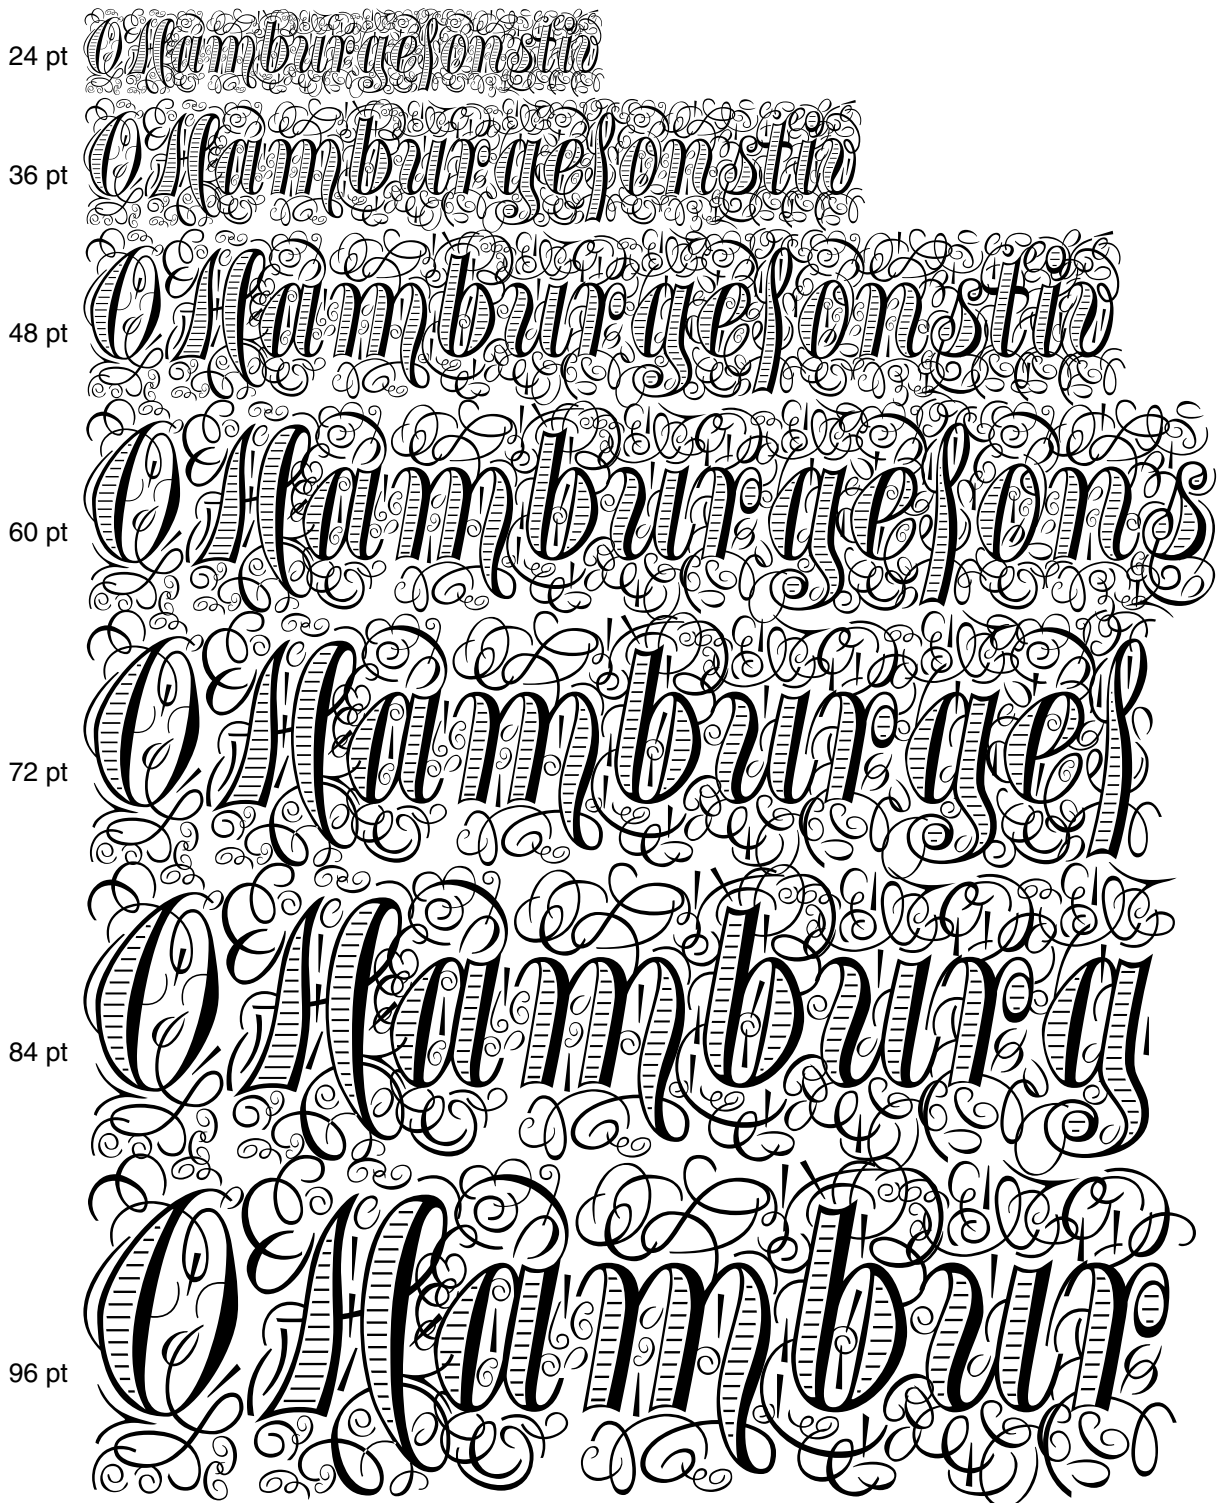 24 pt OHamburgefonstiv
36 pt OHamburgefonstiv
48 pt OHamburgefonstiv
60 pt OHamburgefons
72 pt OHamburgef
84 pt OHamburg
96 pt OHambur